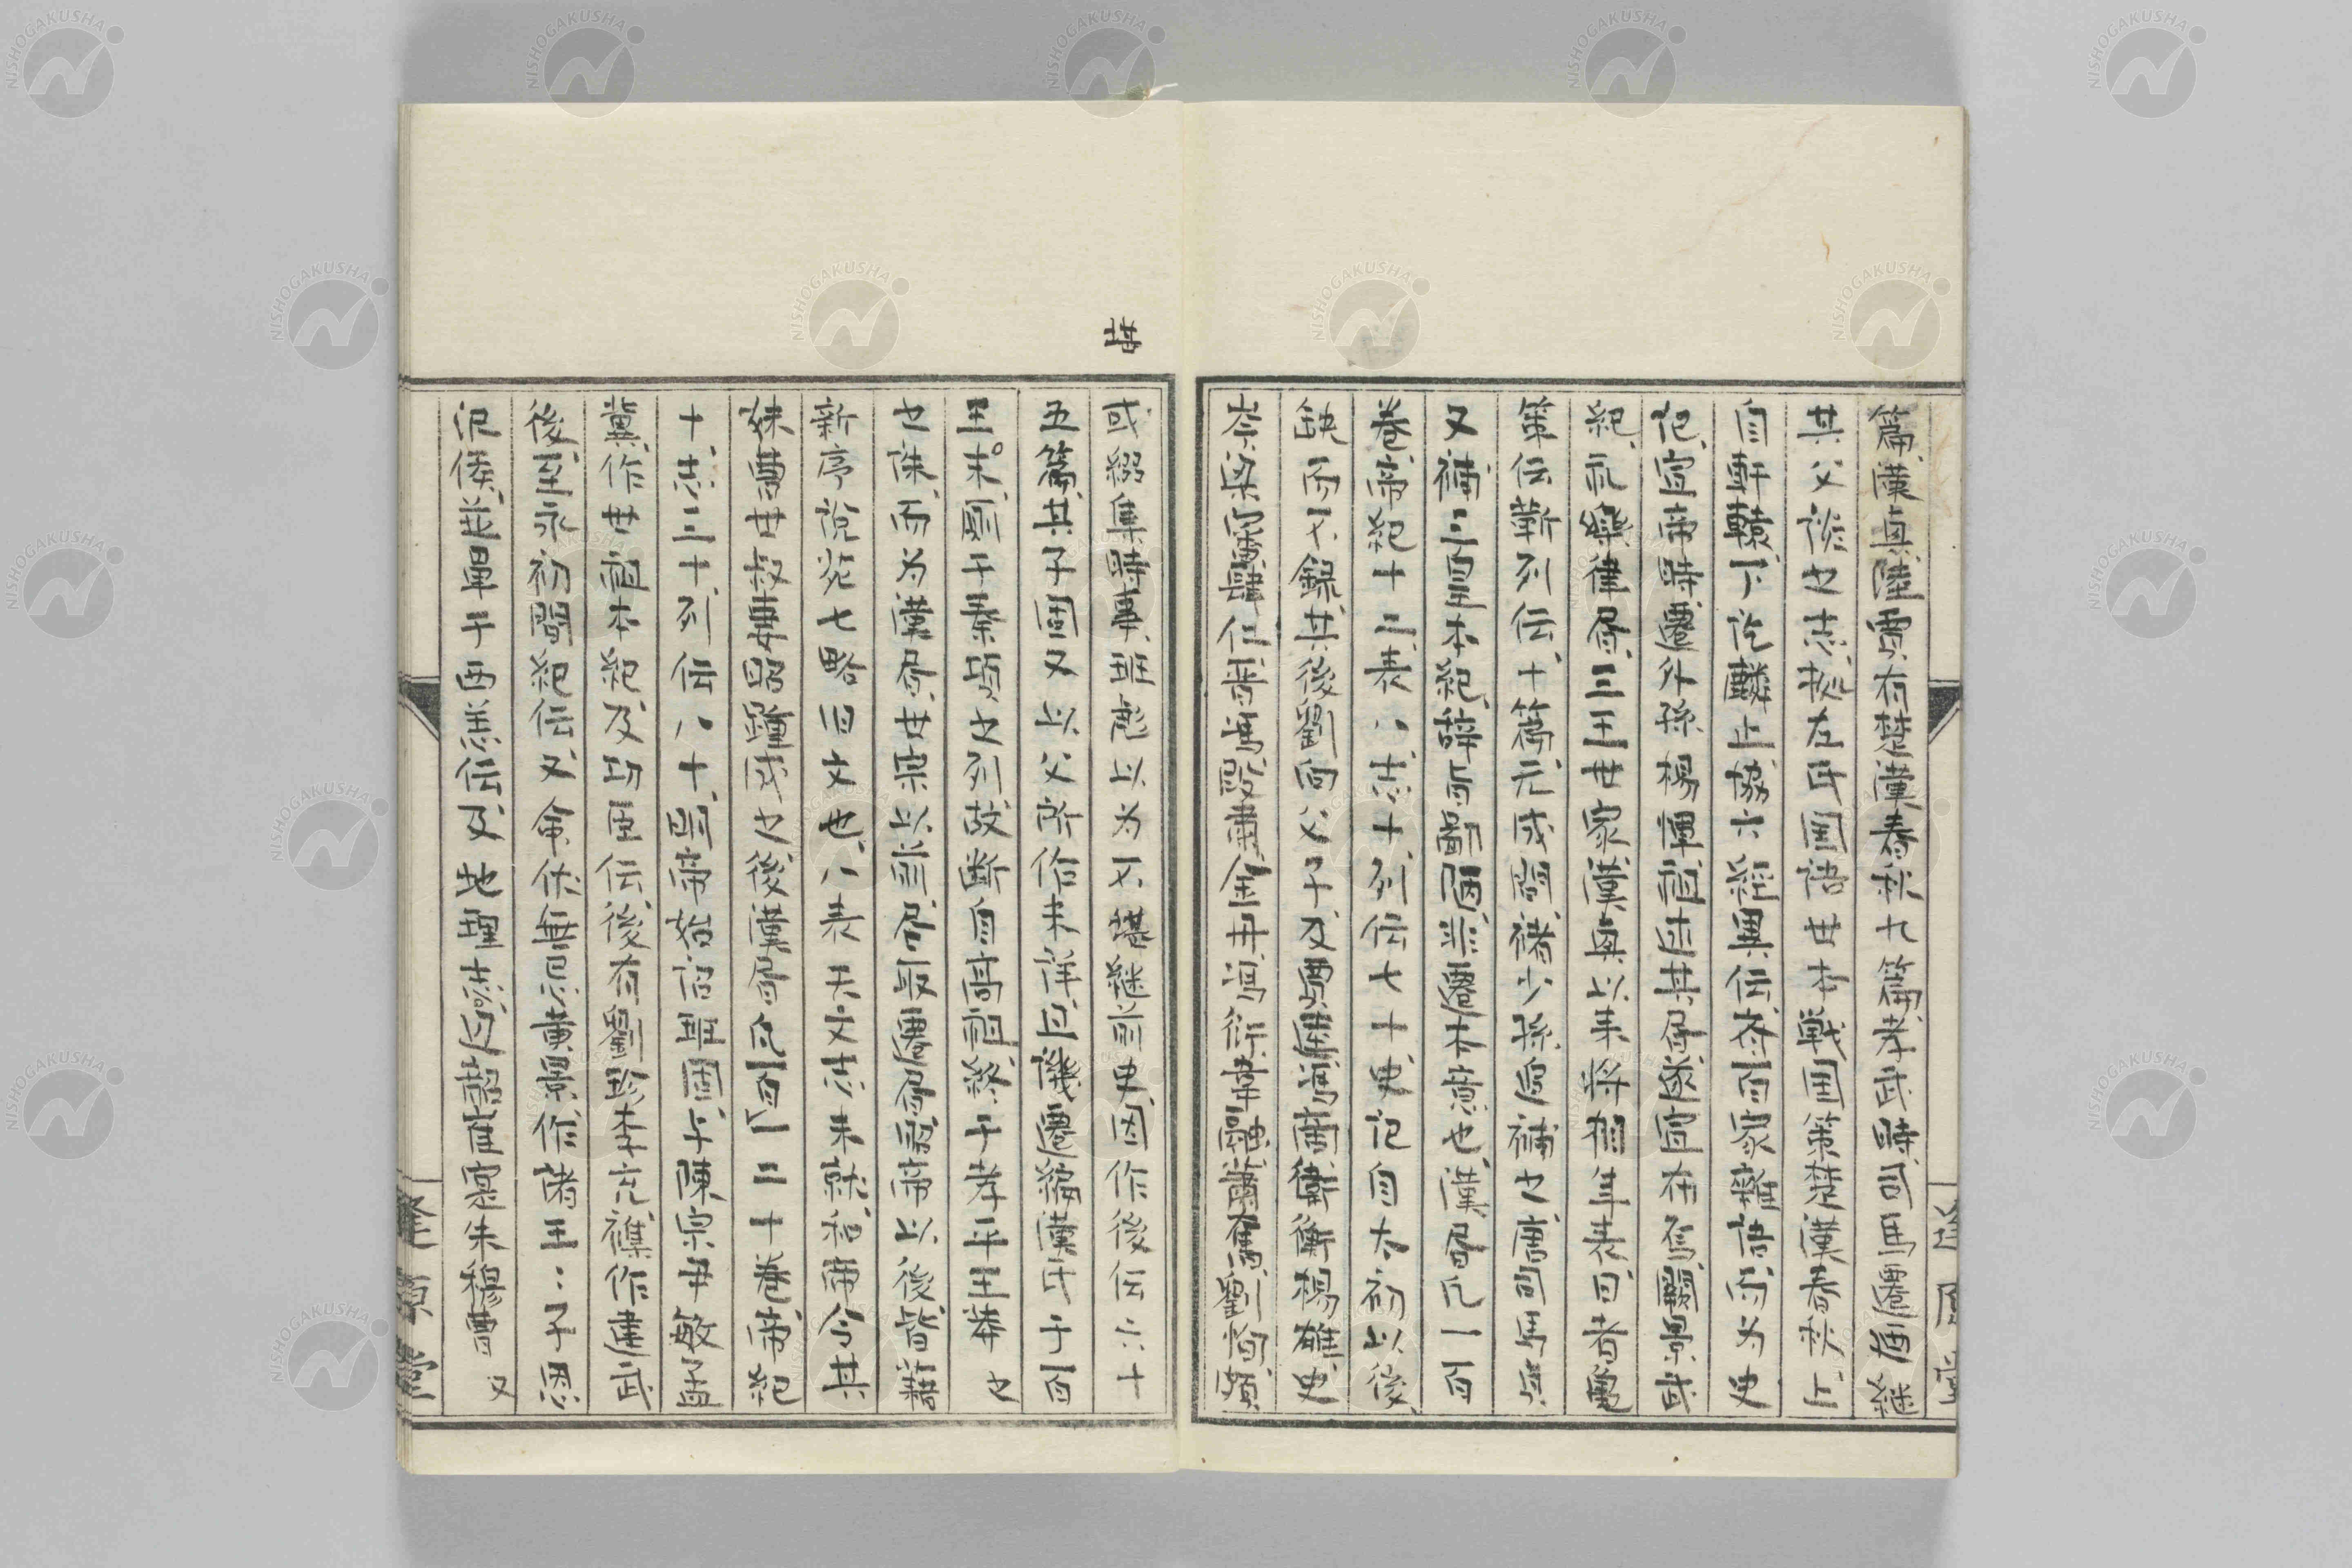 篇、漢興、陸賈有楚漢春秋九篇、孝武時、司馬遷迺継
其父談之志、拠左氏国語世本戦国策楚漢春秋、上
自軒轅、下訖麟止、協六経異伝、斉百家雑語、而为史
记、宣帝時、遷外孫楊惲祖述其書遂宣布焉、闕景武
紀、礼楽律書、三王世家漢興以来将相年表、日者亀
策伝靳列伝、十篇、元成間褚少孫追補之、唐司馬貞
又補三皇本紀、辞旨鄙陋、非遷本意也、漢書凡一百
巻、帝紀十二、表八、志十、列伝七十、史记自太初以後、
缺而不録、其後劉向父子、及
衛衡楊雄、史
岑梁審肆仁晋馮段粛金丹馮衍、韋融、蕭奮、劉恂、頻
堪
或綴集時事、班彪以为不堪継前史、因作後伝六十
五篇、其子固又以父所作未詳、且譏遷編漢氏于百
王末、厠于秦項之列、故断自高祖、終于孝平王莽之
之誅、而为漢書、世宗以前、多取遷書、昭帝以後、皆藉
新序説苑七略旧文也、八表天文志未就、和帝令其
妹曹世叔妻昭踵成之、後漢書凡一百二十巻、帝紀
十、志三十、列伝八十、明帝始詔班固与陳宗尹敏孟
冀、作世祖本紀、及功臣伝、後有劉珍李充、襍作建武
後、至永初間紀伝、又命伏無忌黄景作、諸王、王子恩
沢侯、並単于西羌伝、及地理志、辺韶崔寔朱穆曹又
逢原堂